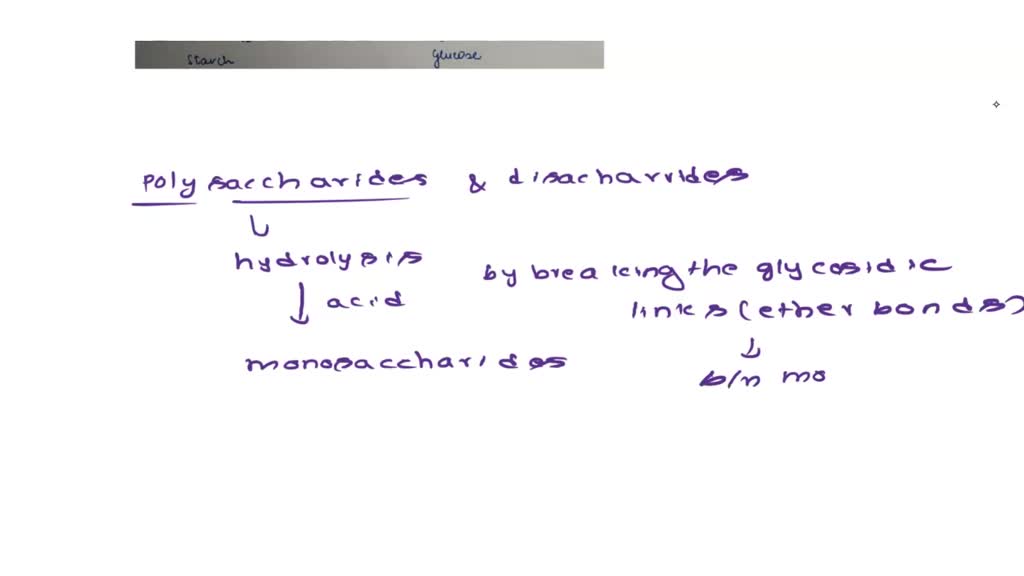 starch glucose
poly saccharides & disacharrides
hydrolysis
by breaking the glycosidic
acid
links (ether bonds)
monosaccharides
b/n mo